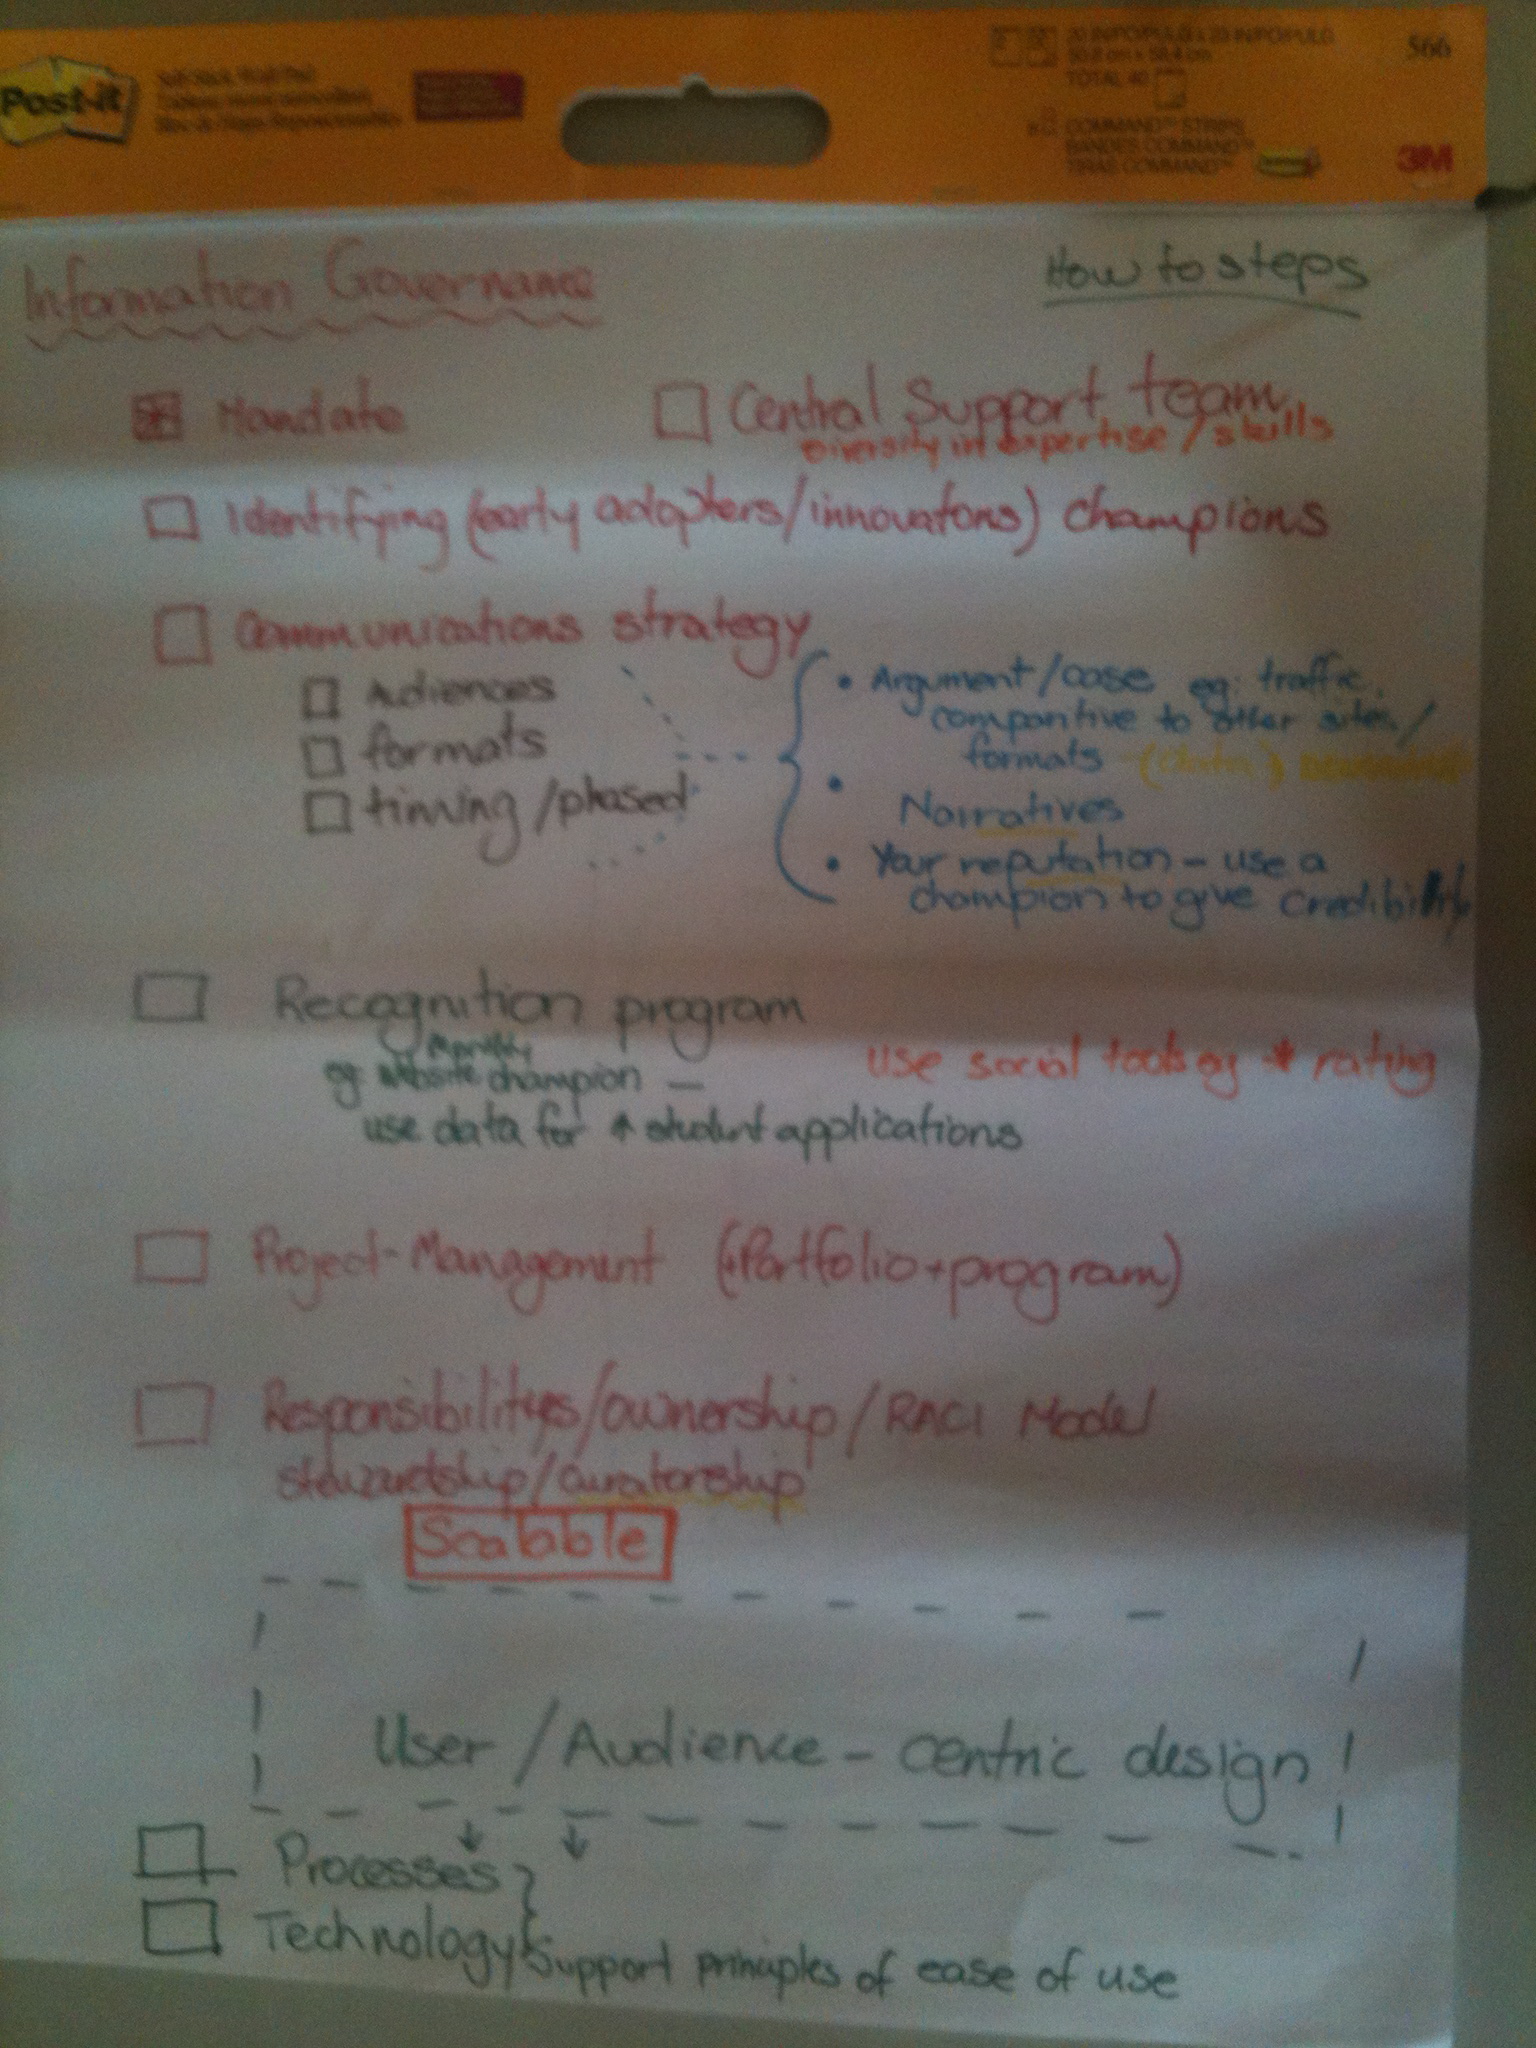 Post-it
566
TOTAL 40
COMMAND™ STRIPS
BANDES COMMAND™
TIRAS COMMAND™
3M
Information Governance
How to steps
Mandate
Central Support team
Diversity in expertise / skills
Identifying (early adopters/innovators) champions
Communications strategy
Audiences
formats
timing/phased
• Argument/case eg: traffic,
comparitive to other sites/
formats (data)
• Narratives
• Your reputation – use a
champion to give credibility
Recognition program
Monthly
eg website champion —
use data for ↑ student applications
use social tools eg * rating
Project-Management (Portfolio + program)
Responsibilitys/ownership/RACI Model
stewardship/curatorship
Scalable
User / Audience – centric design
Processes
Technology
Support principles of ease of use